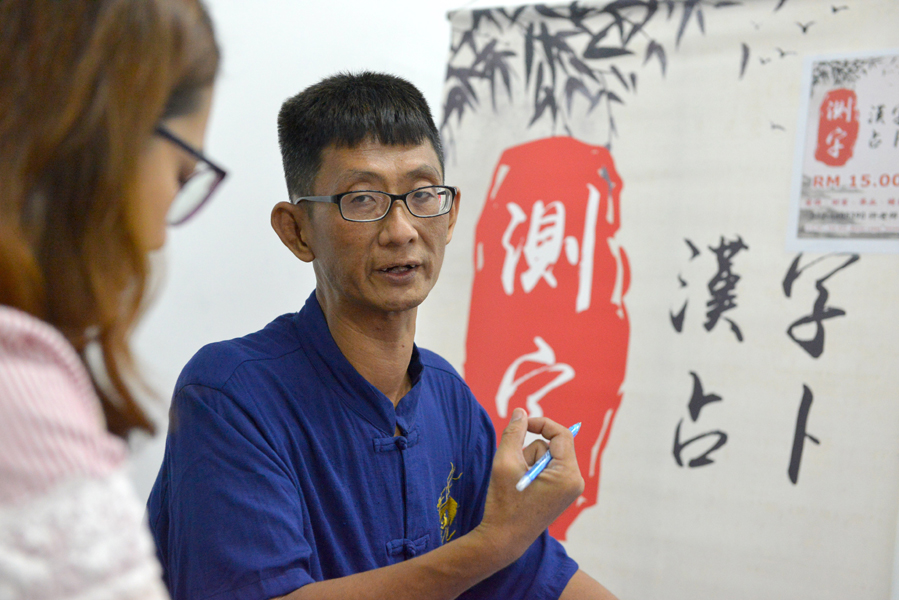 測字
漢字
占卜
測字
漢字
占卜
RM 15.00